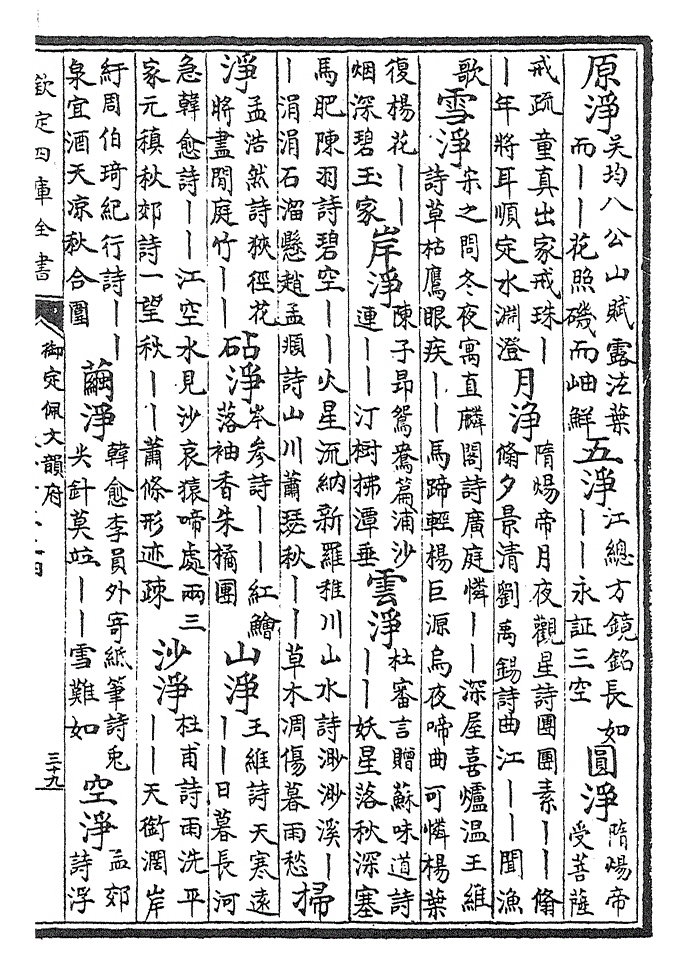 原淨
吳均八公山賦露泫葉
而――花照磯而岫鮮
五淨
江總方鏡銘長如
――永証三空
圓淨
隋煬帝
受菩薩
戒疏童真出家戒珠―
―年將耳順定水淵澄
月淨
隋煬帝月夜觀星詩團團素――翛
翛夕景清劉禹錫詩曲江――聞漁
歌
雪淨
宋之問冬夜寓直麟閣詩廣庭憐――深屋喜爐温王維
詩草枯鷹眼疾――馬蹄輕楊巨源烏夜啼曲可憐楊葉
復楊花――
烟深碧玉家
岸淨
陳子昂鴛鴦篇浦沙
連――汀樹拂潭垂
雲淨
杜審言贈蘇味道詩
――妖星落秋深塞
馬肥陳羽詩碧空――火星流納新羅稚川山水詩渺渺溪―
―涓涓石溜懸趙孟頫詩山川蕭瑟秋――草木凋傷暮雨愁
掃
淨
孟浩然詩狹徑花
將盡閒庭竹――
砧淨
岑參詩――紅鱠
落袖香朱橘團
山淨
王維詩天寒遠
――日暮長河
急韓愈詩――江空水見沙哀猿啼處兩三
家元稹秋郊詩一望秋――蕭條形迹疎
沙淨
杜甫詩雨洗平
――天銜濶岸
紆周伯琦紀行詩――
泉宜酒天凉秋合圍
繭淨
韓愈李員外寄紙筆詩兎
尖針莫竝――雪難如
空淨
孟郊
詩浮
欽定四庫全書
御定佩文韻府
三十九